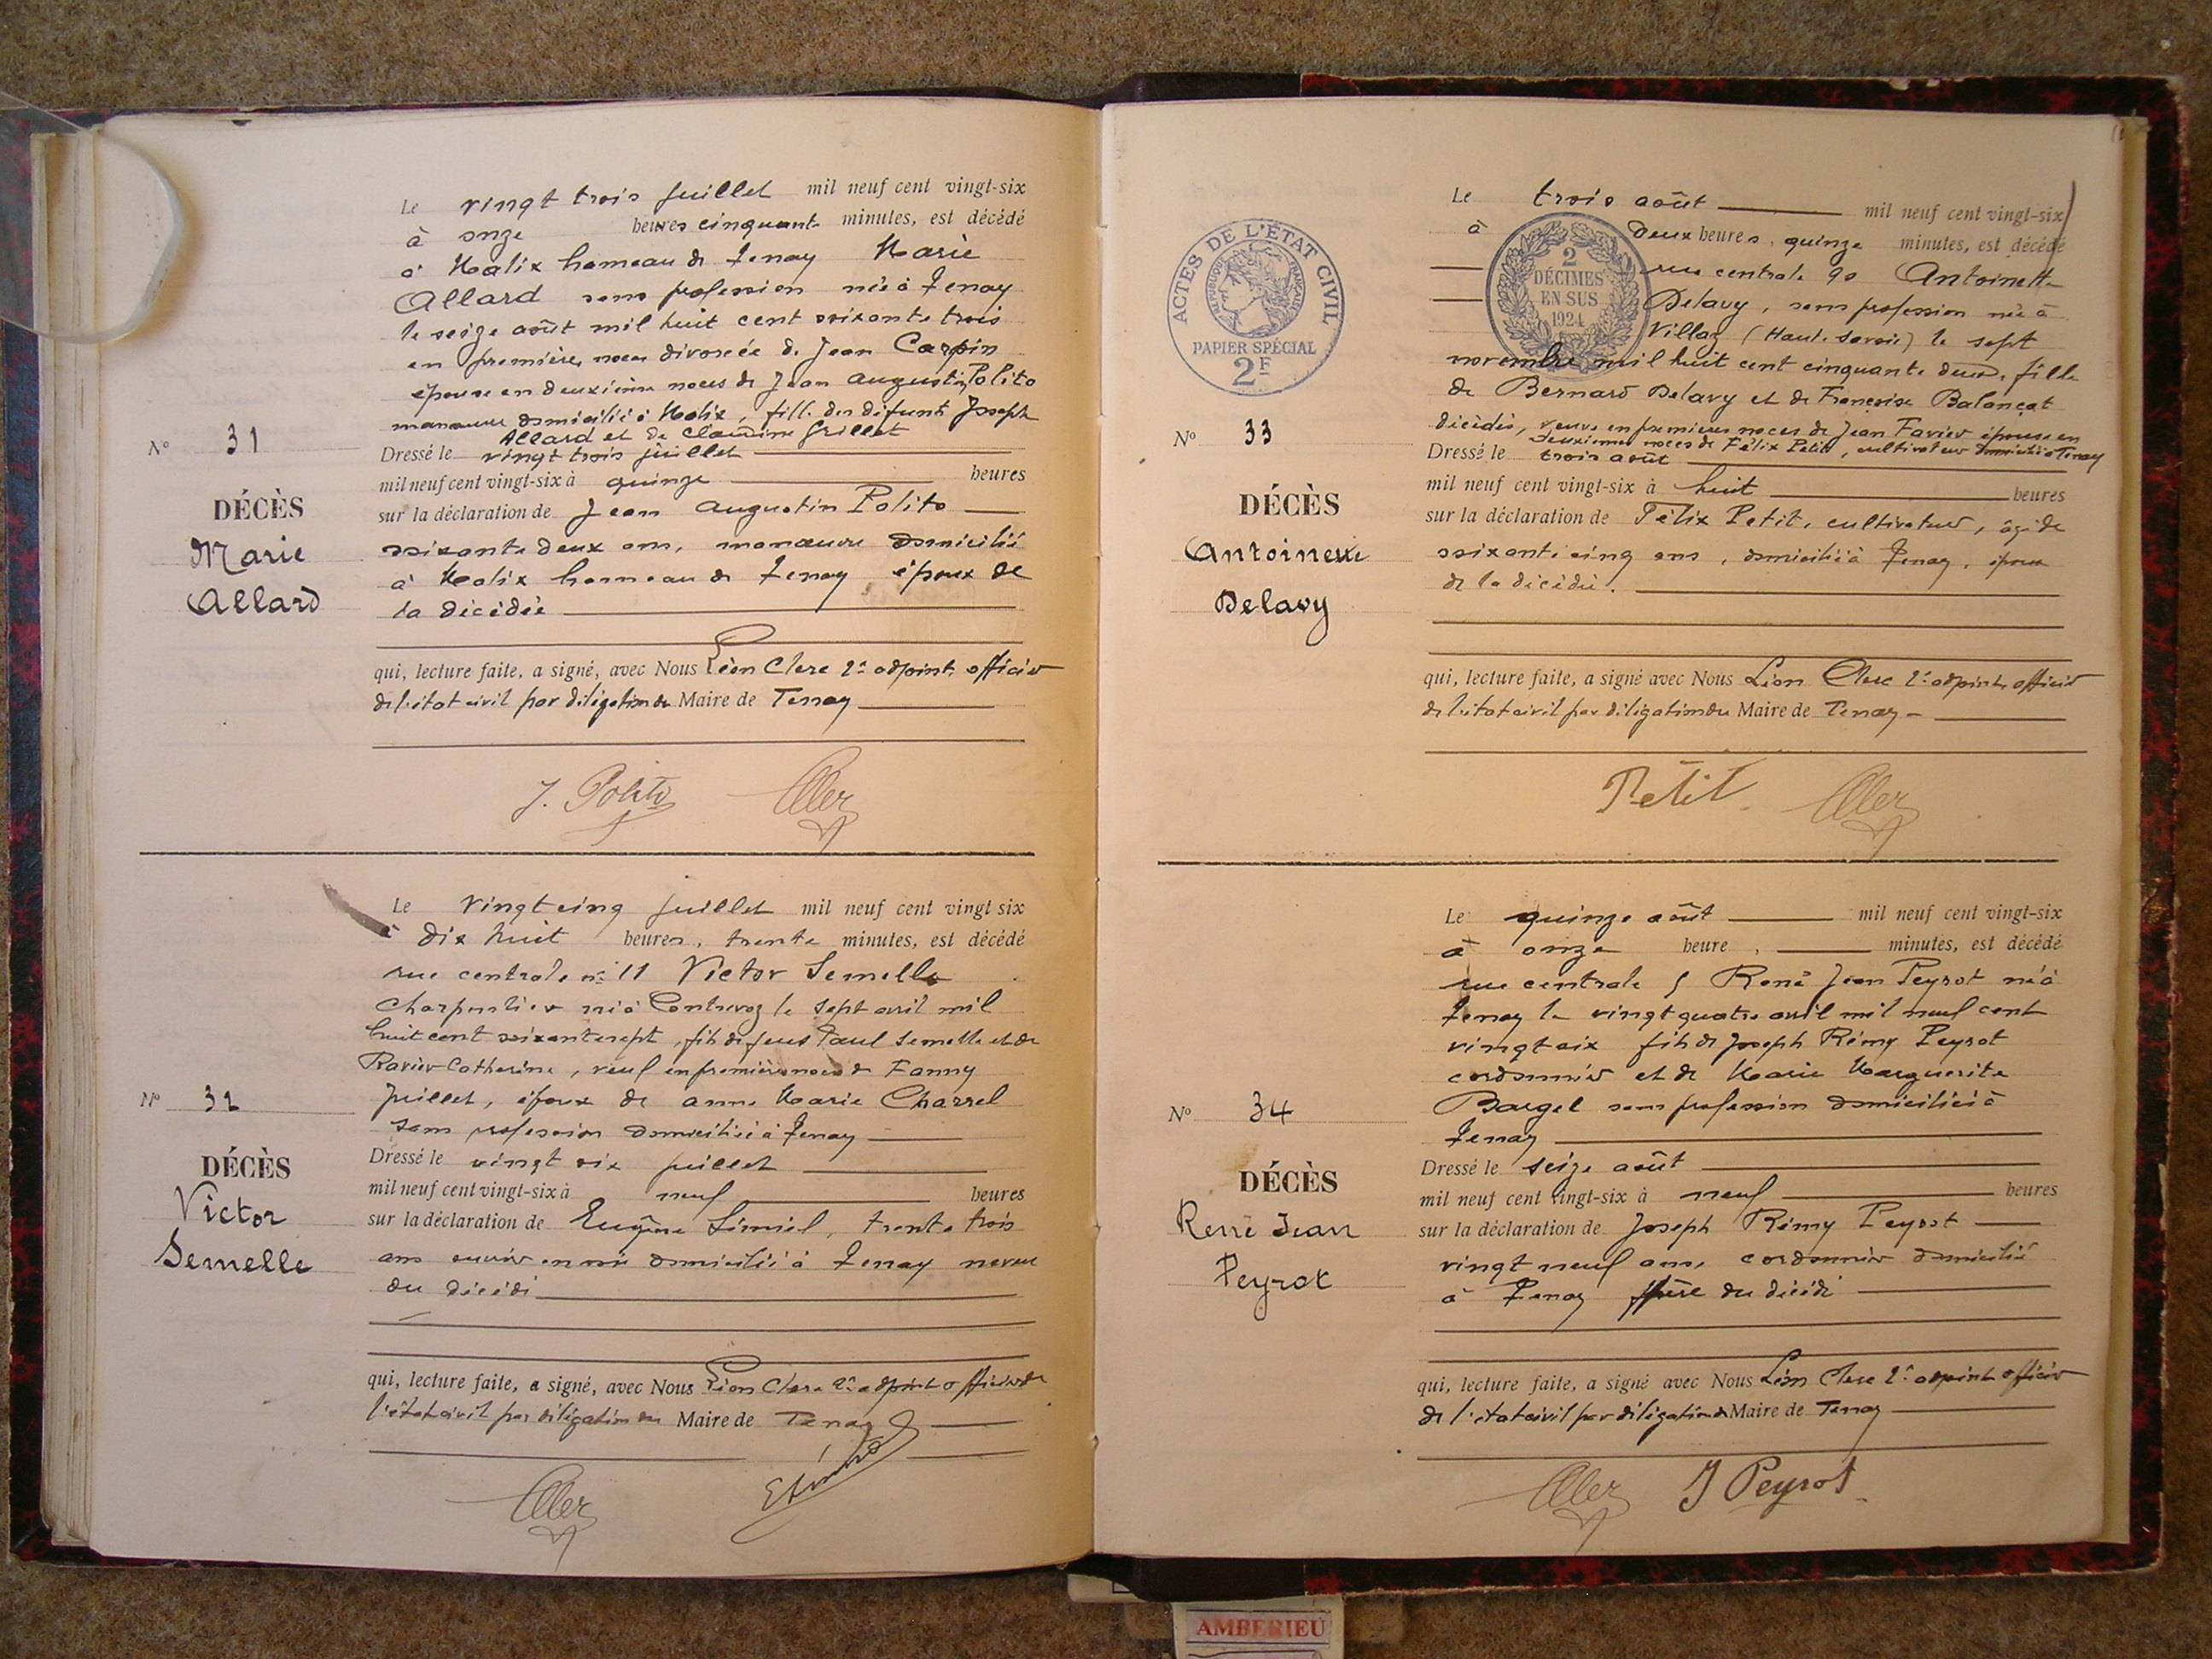 Le vingt trois juillet mil neuf cent vingt-six
à onze heures cinquante minutes, est décédé
à Malix hameau de Tenay Marie
Allard sans profession née à Tenay
le seize août mil huit cent soixante trois
en premières noces divorcée de Jean Carpin
épouse en deuxième noces de Jean Augustin Polito
manœuvre domicilié à Malix, fille des défunts Joseph
Allard et de Claudine Grillet
N° 31
Dressé le vingt trois juillet
mil neuf cent vingt-six à quinze heures
DÉCÈS
Marie
Allard
sur la déclaration de Jean Augustin Polito
soixante deux ans, manœuvre domicilié
à Malix hameau de Tenay époux de
la décédée
qui, lecture faite, a signé, avec Nous Léon Clerc 2e adjoint officier
de l'état civil par délégation du Maire de Tenay
J. Polito Clerc
Le vingt cinq juillet mil neuf cent vingt six
à dix huit heures, trente minutes, est décédé
rue centrale n° 11 Victor Semelle
charpentier né à Contrevoz le sept avril mil
huit cent soixante sept, fils de feus Paul Semelle et de
Ravier Catherine, veuf en premières noces de Fanny
Juillet, époux de Anne Marie Charrel
sans profession domiciliée à Tenay
N° 32
Dressé le vingt six juillet
mil neuf cent vingt-six à neuf heures
DÉCÈS
Victor
Semelle
sur la déclaration de Eugène trente trois
ans domicilié à Tenay neveu
du décédé
qui, lecture faite, a signé, avec Nous Léon Clerc 2e adjoint officier de
l'état civil par délégation du Maire de Tenay
Clerc
ACTES DE L'ÉTAT CIVIL
RÉPUBLIQUE FRANÇAISE
PAPIER SPÉCIAL
2F
2
DÉCIMES
EN SUS
1924
Le trois août mil neuf cent vingt-six
à deux heures, quinze minutes, est décédé
rue centrale 90 Antoinette
Delavy, sans profession née à
Villaz (Haute Savoie) le sept
novembre mil huit cent cinquante deux, fille
de Bernard Delavy et de Françoise Balançat
décédés, veuve en premières noces de Jean Favier épouse en
deuxièmes noces de Félix Petit, cultivateur domicilié à Tenay
N° 33
Dressé le trois août
mil neuf cent vingt-six à huit heures
DÉCÈS
Antoinette
Delavy
sur la déclaration de Félix Petit, cultivateur, âgé de
soixante cinq ans, domicilié à Tenay, époux
de la décédée.
qui, lecture faite, a signé avec Nous Léon Clerc 2e adjoint officier
de l'état civil par délégation du Maire de Tenay
Petit Clerc
Le quinze août mil neuf cent vingt-six
à onze heure, minutes, est décédé
rue centrale 5 René Jean Peyrot né à
Tenay le vingt quatre avril mil neuf cent
vingt six fils de Joseph Rémy Peyrot
cordonnier et de Marie Marguerite
Bargel sans profession domiciliés à
Tenay
N° 34
Dressé le seize août
mil neuf cent vingt-six à neuf heures
DÉCÈS
René Jean
Peyrot
sur la déclaration de Joseph Rémy Peyrot
vingt neuf ans, cordonnier domicilié
à Tenay père du décédé
qui, lecture faite, a signé avec Nous Léon Clerc 2e adjoint officier
de l'état civil par délégation du Maire de Tenay
Clerc J Peyrot
AMBERIEU